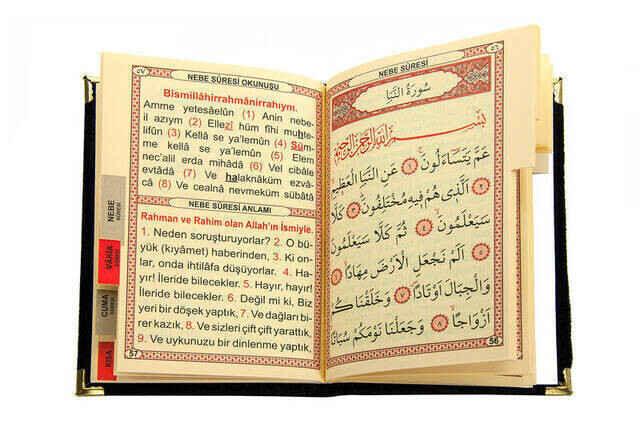 ٥٧
NEBE SÛRESİ OKUNUŞU
Bismillâhirrahmânirrahıym.
Amme yetesâelûn (1) Anin nebe-
il azıym (2) Ellezî hüm fîhi muhte-
lifûn (3) Kellâ se ya'lemûn (4) Süm-
me kellâ se ya'lemûn (5) Elem
nec'alil erda mihâdâ (6) Vel cibâle
evtâdâ (7) Ve halaknâküm ezvâ-
câ (8) Ve cealnâ nevmeküm sübâtâ
NEBE SÛRESİ ANLAMI
Rahman ve Rahim olan Allah'ın İsmiyle.
1. Neden soruşturuyorlar? 2. O bü-
yük (kıyâmet) haberinden, 3. Ki on-
lar, onda ihtilâfa düşüyorlar. 4. Ha-
yır! İleride bilecekler. 5. Hayır, hayır!
İleride bilecekler. 6. Değil mi ki, Biz
yeri bir döşek yaptık, 7. Ve dağları bi-
rer kazık, 8. Ve sizleri çift çift yarattık,
9. Ve uykunuzu bir dinlenme yaptık,
57
NEBE SÛRESİ
VÂKIA SÛRESİ
CUMA SÛRESİ
KISA
٥٦
NEBE SÛRESİ
سُورَةُ النَّبَأِ
بِسْمِ اللّٰهِ الرَّحْمٰنِ الرَّحِيمِ
عَمَّ يَتَسَاءَلُونَ ١ عَنِ النَّبَاِ الْعَظِيمِ
٢ اَلَّذِى هُمْ فِيهِ مُخْتَلِفُونَ ٣ كَلَّا
سَيَعْلَمُونَ ٤ ثُمَّ كَلَّا سَيَعْلَمُونَ
٥ اَلَمْ نَجْعَلِ الْاَرْضَ مِهَادًا ٦
وَالْجِبَالَ اَوْتَادًا ٧ وَخَلَقْنَاكُمْ
اَزْوَاجًا ٨ وَجَعَلْنَا نَوْمَكُمْ سُبَاتًا
56